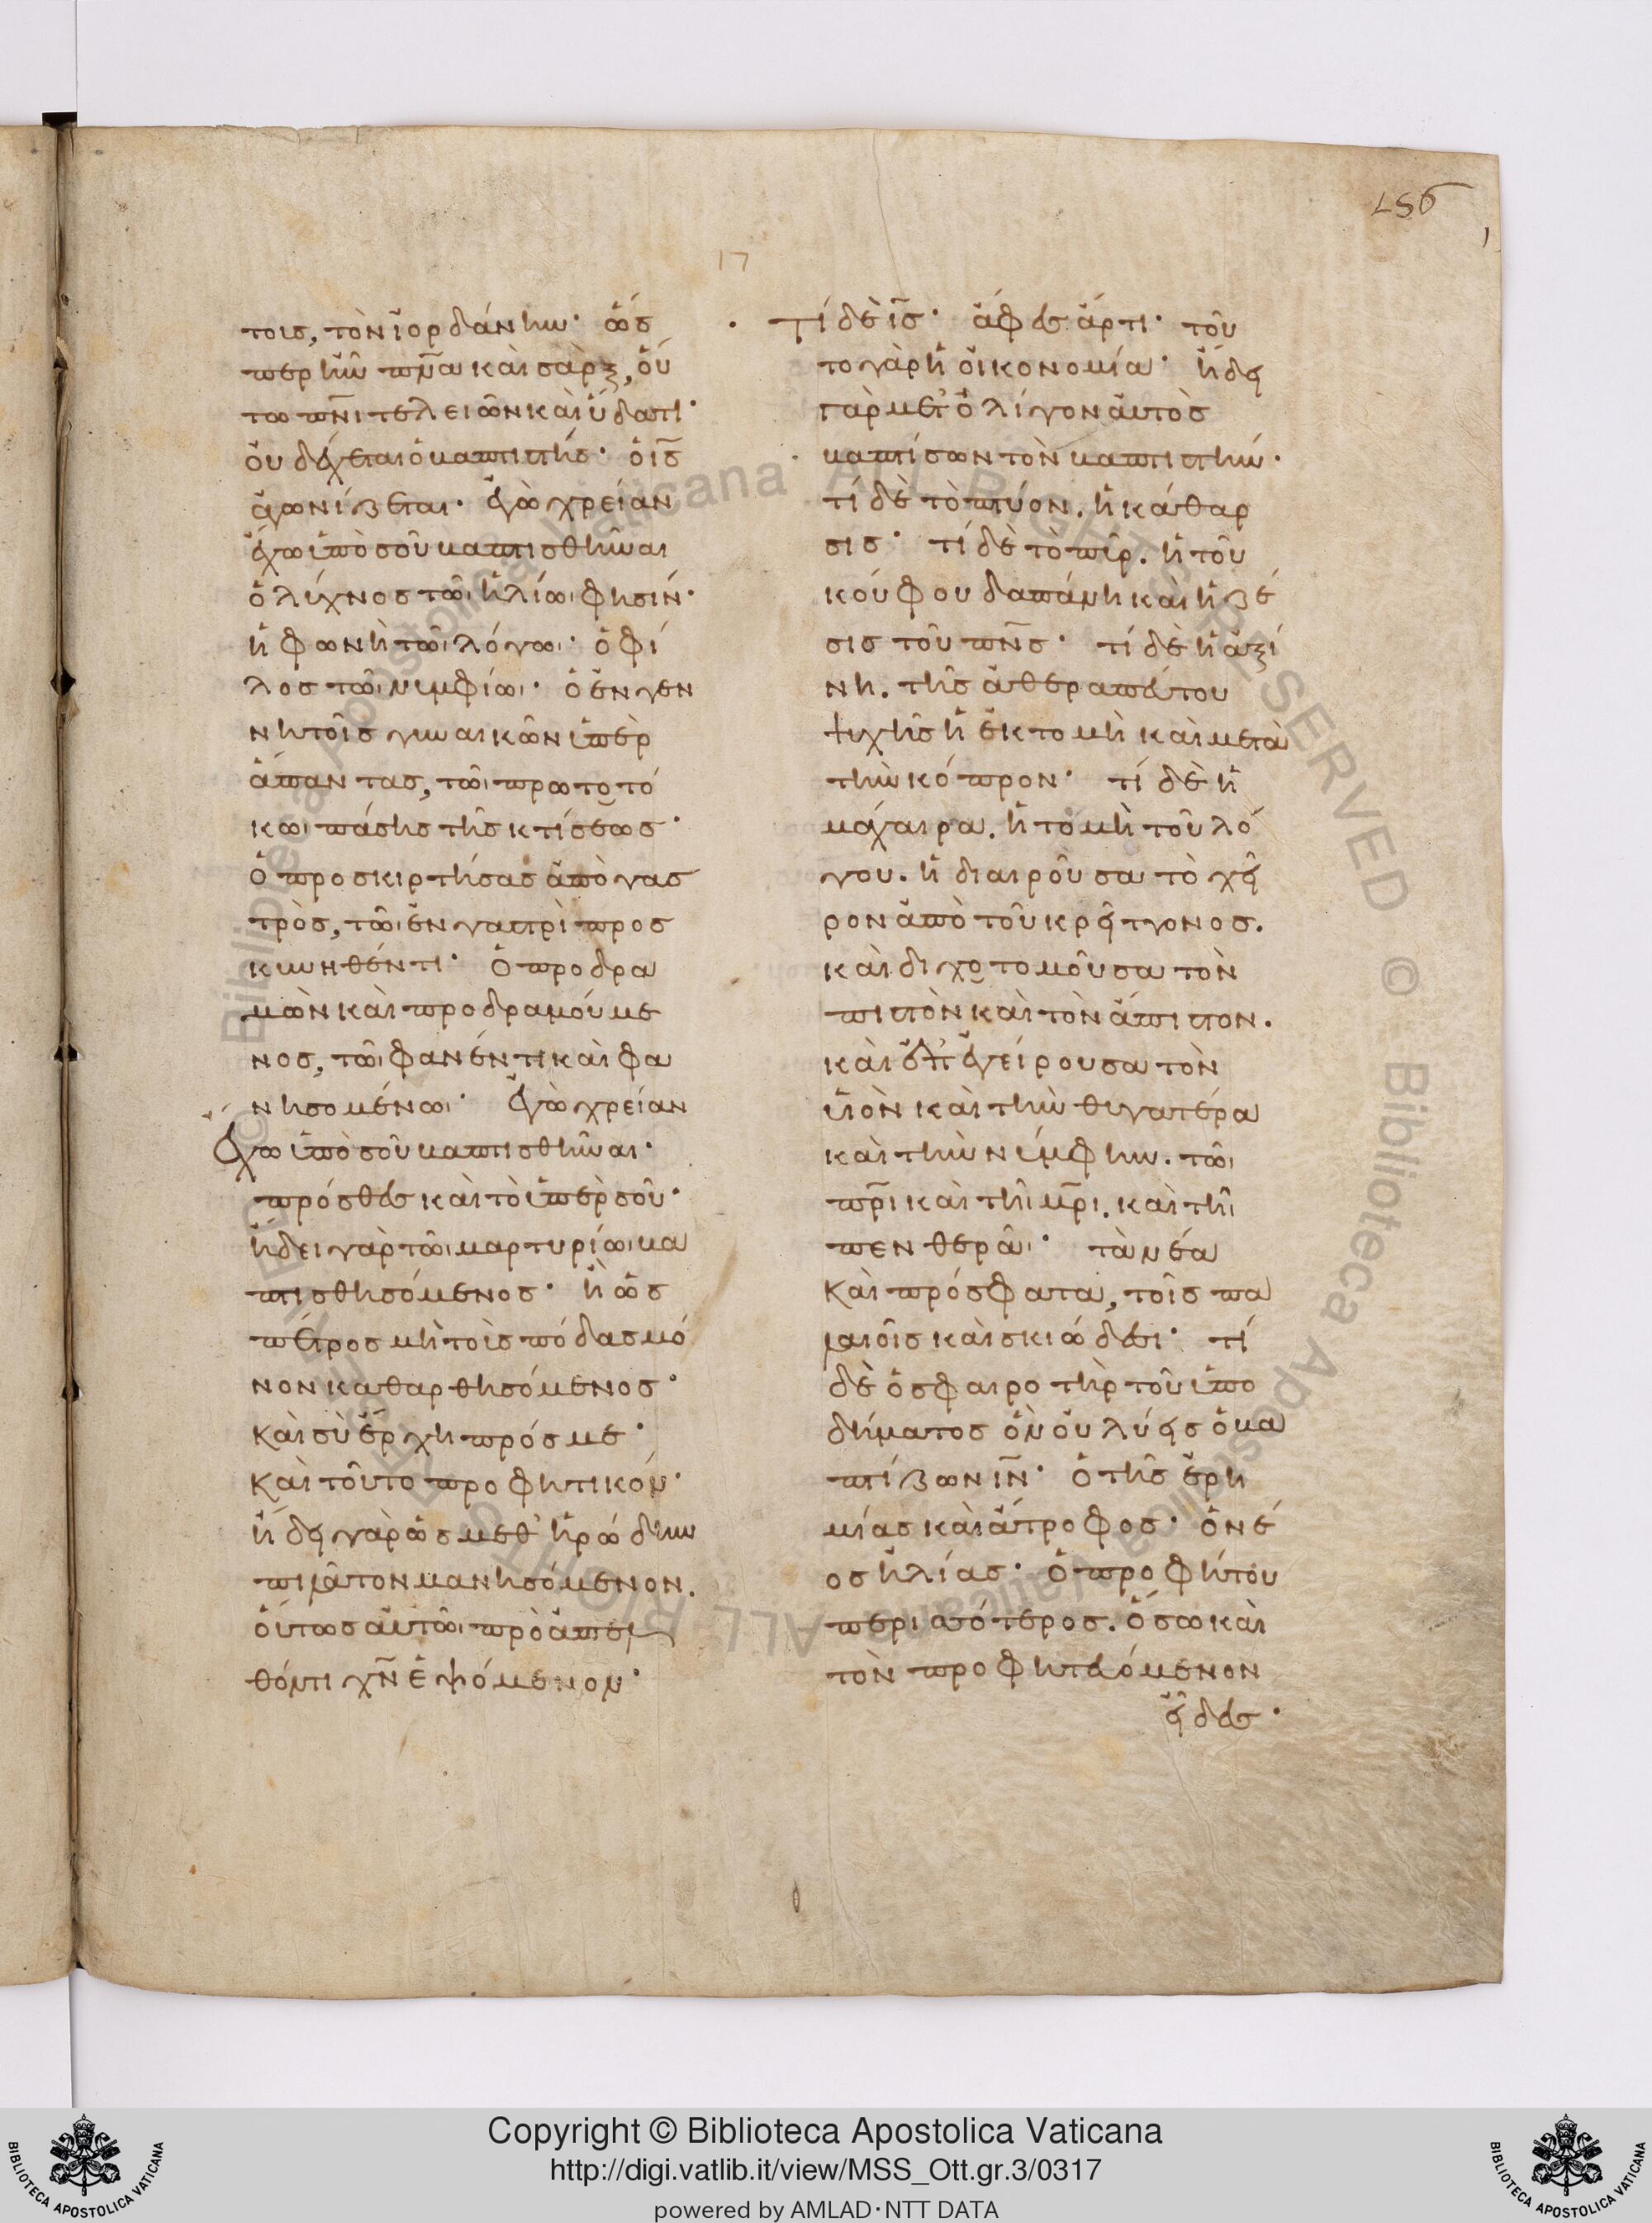 156
17
τοις, τὸν ἰορδάνην· ὥσ
περ ἦν πνα καὶ σὰρξ, οὕ
τω πνι τελειῶν καὶ ὕδατι·
οὐ δέχεται ὁ βαπτιστής· ὁ ις
ἀγωνίζεται· ἐγὼ χρείαν
ἔχω ὑπὸ σοῦ βαπτισθῆναι
ὁ λύχνος τῶι ἡλίωι φησίν·
ἡ φωνὴ τῶι λόγωι· ὁ φί
λος τῶι νυμφίωι· ὁ ἐν γεν
νητοῖς γυναικῶν ὑπὲρ
ἅπαντας, τῶι πρωτοτό
κωι πάσης τῆς κτίσεως·
ὁ προσκιρτήσας ἀπὸ γασ
τρὸς, τῶι ἐν γαστρὶ προσ
κυνηθέντι· ὁ προδρα
μὼν καὶ προδραμούμε
νος, τῶι φανέντι καὶ φα
νησομένωι· ἐγὼ χρείαν
ἔχω ὑπὸ σοῦ βαπτισθῆναι·
πρόσθες καὶ τὸ ὑπὲρ σοῦ·
ἤδει γὰρ τῶι μαρτυρίωι βα
πτισθησόμενος· ἢ ὡς
πέτρος μὴ τοὺς πόδας μό
νον καθαρθησόμενος·
καὶ σὺ ἔρχη πρός με·
καὶ τοῦτο προφητικόν·
ἤδει γὰρ ὡς μεθ' ἡρώδην
πιλᾶτον μανησόμενον.
οὕτως αὐτῶι προαπελ
θόντι χν ἑψόμενον·
Τί δὲ ις· ἄφες ἄρτι· τοῦ
το γὰρ ἡ οἰκονομία· ἤδει
γὰρ μετ' ὀλίγον αὐτὸς
βαπτίσων τὸν βαπτιστήν·
τί δὲ τὸ πτύον. ἡ κάθαρ
σις· τί δὲ τὸ πῦρ. ἡ τοῦ
κούφου δαπάνη καὶ ἡ ζέ
σις τοῦ πνς· τί δὲ ἡ ἀξί
νη. τῆς ἀθεραπεύτου
ψυχῆς ἡ ἐκτομὴ καὶ μετὰ
τὴν κόπρον· τί δὲ ἡ
μάχαιρα. ἡ τομὴ τοῦ λό
γου. ἡ διαιροῦσα τὸ χεῖ
ρον ἀπὸ τοῦ κρείττονος.
καὶ διχοτομοῦσα τὸν
πιστὸν καὶ τὸν ἄπιστον.
καὶ ἐπεγείρουσα τὸν
υἱὸν καὶ τὴν θυγατέρα
καὶ τὴν νύμφην. τῶι
πρι καὶ τῆι μρι. καὶ τῆι
πενθερᾶι· τὰ νέα
καὶ πρόσφατα, τοῖς πα
λαιοῖς καὶ σκιώδεσι· τί
δὲ ὁ σφαιροτὴρ τοῦ ὑπο
δήματος ὃν οὐ λύεις ὁ βα
πτίζων ιν· ὁ τῆς ἐρη
μίας καὶ ἄτροφος· ὁ νέ
ος ἠλίας· ὁ προφήτου
περισσότερος. ὅσω καὶ
τὸν προφητευόμενον
εἶδες·
Copyright © Biblioteca Apostolica Vaticana
http://digi.vatlib.it/view/MSS_Ott.gr.3/0317
powered by AMLAD·NTT DATA